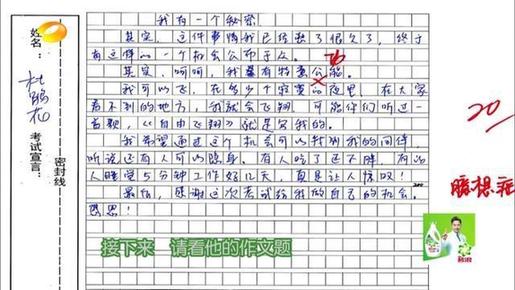 我有一个秘密
其实,这件事情我已经憋了很久了,终于
有这样的一个机会公布于众。
其实,呵呵,我是有特异公能。
功
我可以飞,在多少个寂寞的夜里,在大家
看不到的地方,我就会飞翔,可能你们听过一
首歌,《自由飞翔》就是写我的。
我希望通过这个机会可以找到我的同伴,
听说还有人可以隐身。有人吃了还不胖,有的
人睡觉5分钟工作好几天,真是让人惊叹!
最后,感谢这次考试给我做自己的机会。
恩恩!
20
臆想症
姓名:
考试宣言:
密封线
接下来 请看他的作文题